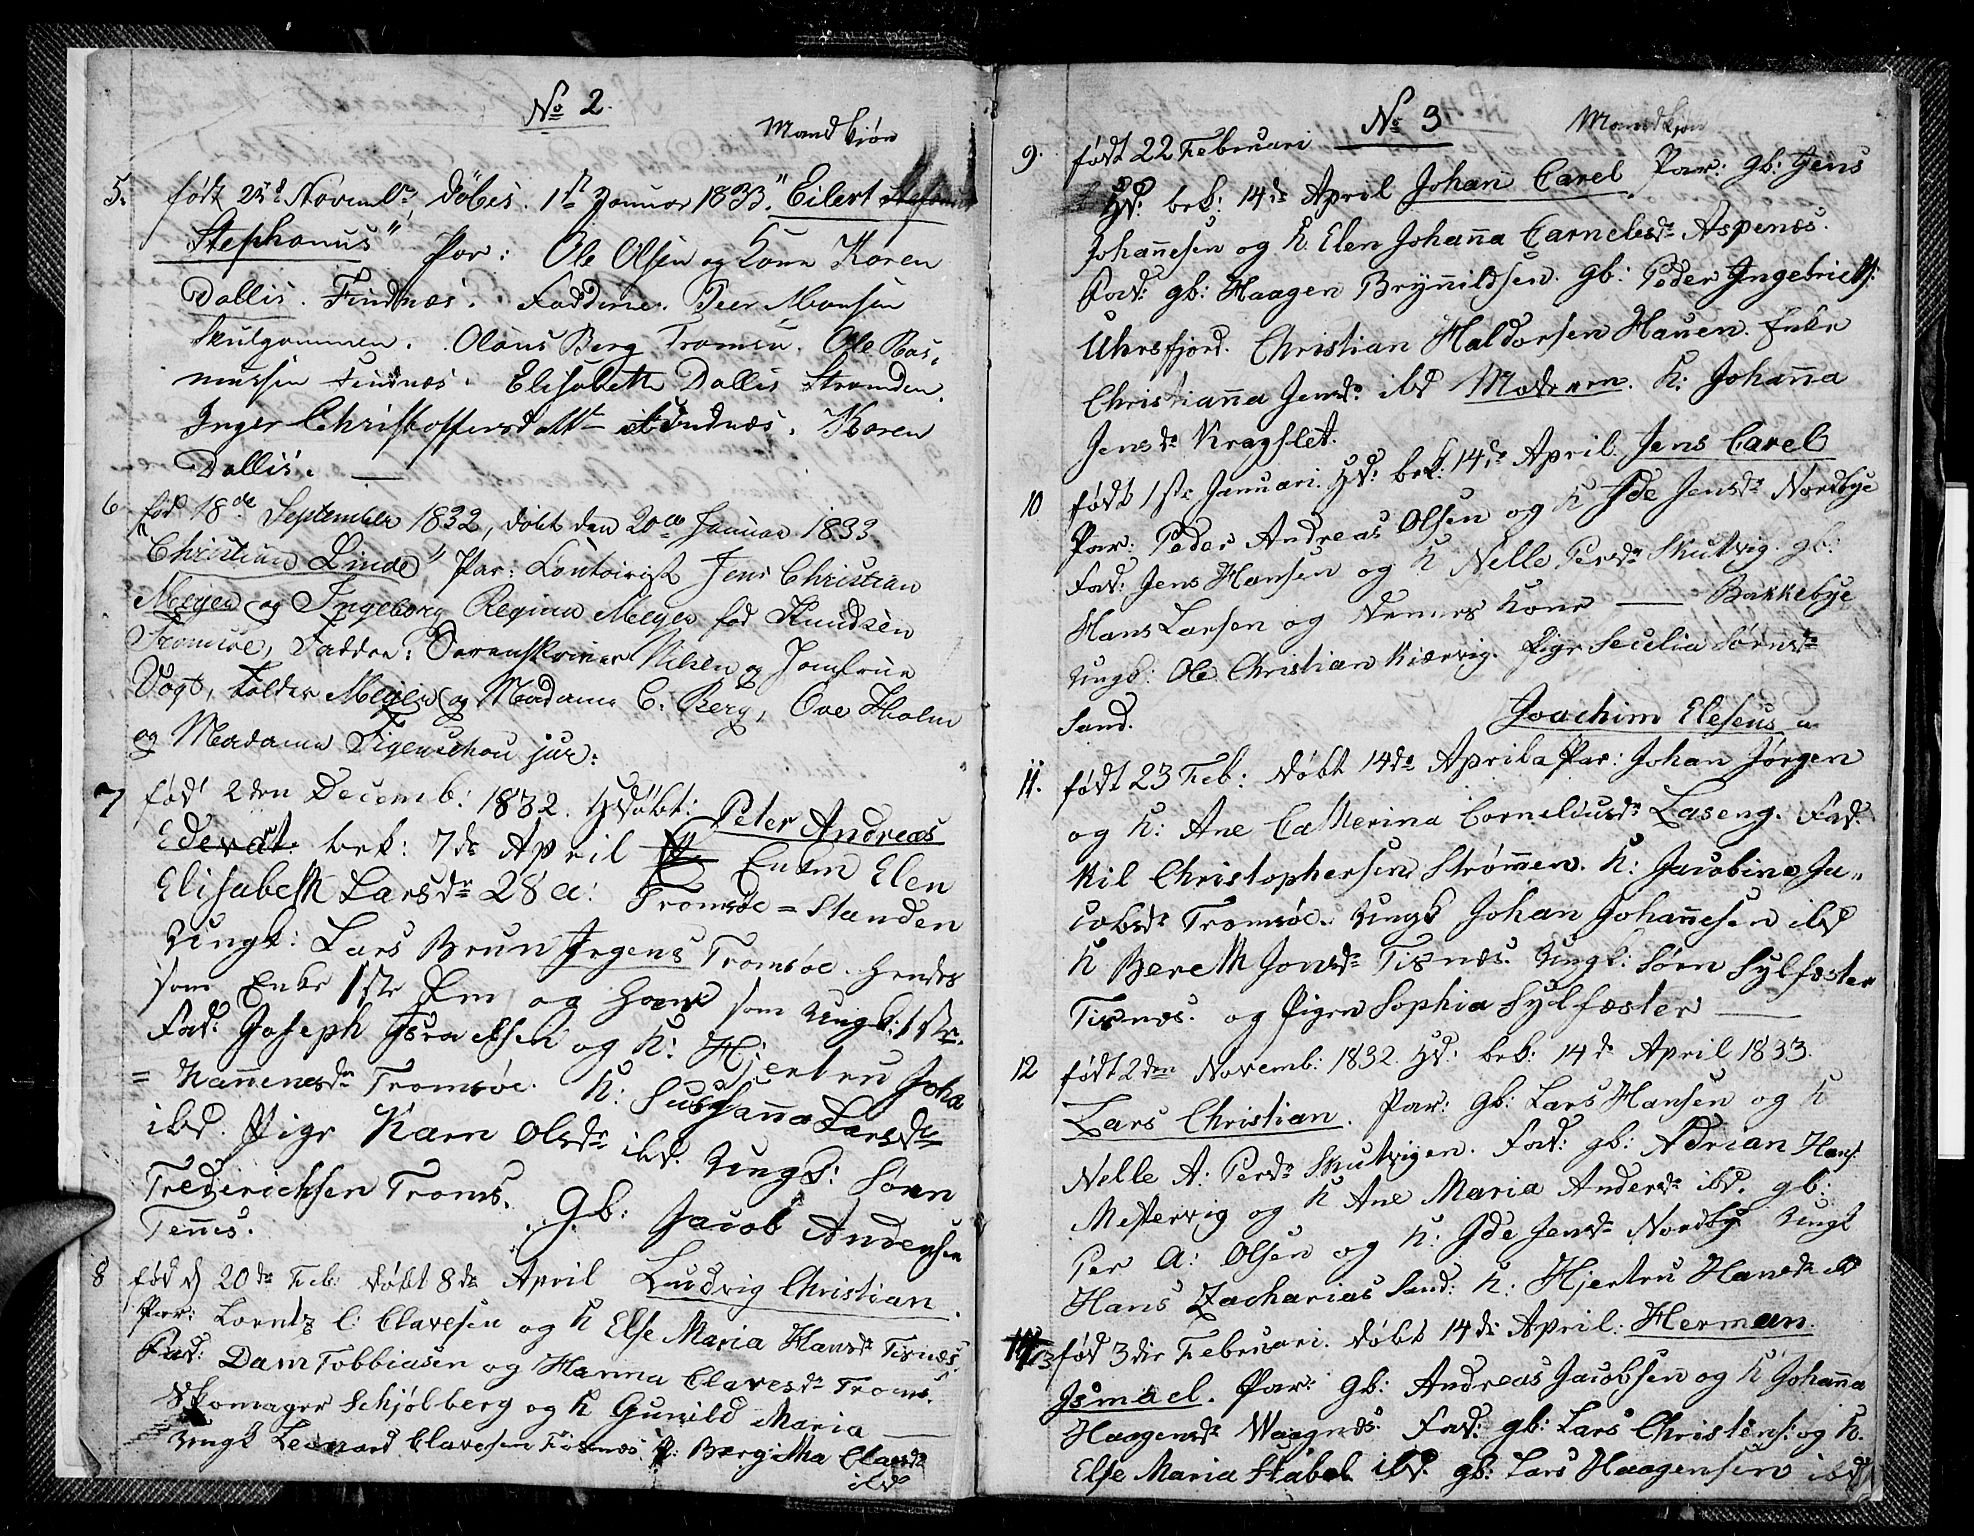 No 2.
Mandkjøn
5. født 25de Novembr, döbes. 1ste Januar 1833 "Eilert
Stephanus" Par: Ole Olsen og Kone Karen
Dallis. Findnæs. Faddrene. Peer Monsen
Skulgammen. Olaus Berg Tromsø. Ole Ras-
mussen Findnæs. Elisabeth Dallis Stranden.
Inger Christoffersdatt Findnæs. Karen
Dallis. —
6 fød 18de September 1832, døbt den 20de Januar 1833
"Christian Linde" Par: Contoirist Jens Christian
Meyer og Ingeborg Regina Meyer fød Knudsen
Tromsøe, Faddre: Sorenskriver Nilsen og Jomfrue
Vogt, Tolder Meyer og Madame C. Berg, Ove Holm
og Madame Figenschou jur:
7 fød 2den Decemb: 1832. Hdøbt: Peter Andreas
Edevdt. bek: 7de April Enken Elen
Elisabeth Larsdr 28 a: Tromsøe = Standen
Ungk: Lars Brun Jrgens Tromsøe. Hendes
som Enke 1ste Lm og Hans som Ungk: 1ste.
Fad: Joseph Israelsen og K: Hjertru Joha
= hannesdr Tromsøe. K: Susanna Larsdr
ibd. Pige Karn Olsdr ibd. Ungk: Sørn
Frederichsen Troms. Gb: Jacob Andersen
Tennes.
8 fød d 20de Feb: døbt 8de April Ludvig Christian.
Par: Lorntz C: Clavesen og K Else Maria Hansdr Tisnæs.
Fad: Dam Tobbiasen og Hanna Clavesdr Troms.
Skomager Schjølberg og K Gunild Maria —
Ungk Leonard Clavesen Tisnæs. P: Bergitha Clavsdr
ibd
No 3
Mandkjøn
9. født 22 Februari
Hd: bek: 14de April Johan Carel Par: gb: Jens
Johannesen og K. Elen Johanna Carnelisdr Aspenæs.
Fad: gb: Haagen Brynnildsen. gb: Peder Ingebrigts:
Uhrsfjord. Christian Haldorsen Hauen. Enke
Christianna Jensdr ibd Moderen. K: Johanna
Jensdr Kragslet.
10 født 1ste Januari. Hd: bek: 14de April Jens Carel
Par: Peder Andreas Olsen og K Ide Jensdr Nordbye
Fad: Jens Hansen og K Nelle Persdr Skutvig gb:
Hans Larsen og Kone — Bakkebye
Ungk: Ole Christian Kiærvig. Pige Secelia Sørnsdr
Sand.
Joachim Eleseus
11. født 23 Feb: døbt 14de April Par: Johan Jørgen
og K: Ane Catherina Corneliusdr Laseng. Fad:
Nil Christophersen Strømmen. K: Jacobina Ja-
cobsdr Tromsøe. Ungk Johan Johannesen ibd
K Bereth Jonsdr Tisnæs. Ungk: Sørn Sylfæster
Tisnæs. og Pigen Sophia Sylfæster —
12 født 2den Novemb: 1832. Hd: bek: 14de April 1833.
Lars Christian. Par: gb: Lars Hansen og K
Nelle A: Persdr Skutvigen. Fad: gb: Adrian Hans:
Mestervig og K Ane Maria Andersdr ibd. gb:
Per A: Olsen og K: Ide Jensdr Nordby Ungk
Hans Zacharias Sand: K: Hjertru Hansdr ibd
13 fød 3die Februari. døbt 14de April. Herman
Ismael. Par: gb: Andreas Jacobsen og K Johanna
Haagensdr Waagnæs. Fad: gb: Lars Christens: og K.
Else Maria Stabel ibd. gb: Lars Haagensen ibd